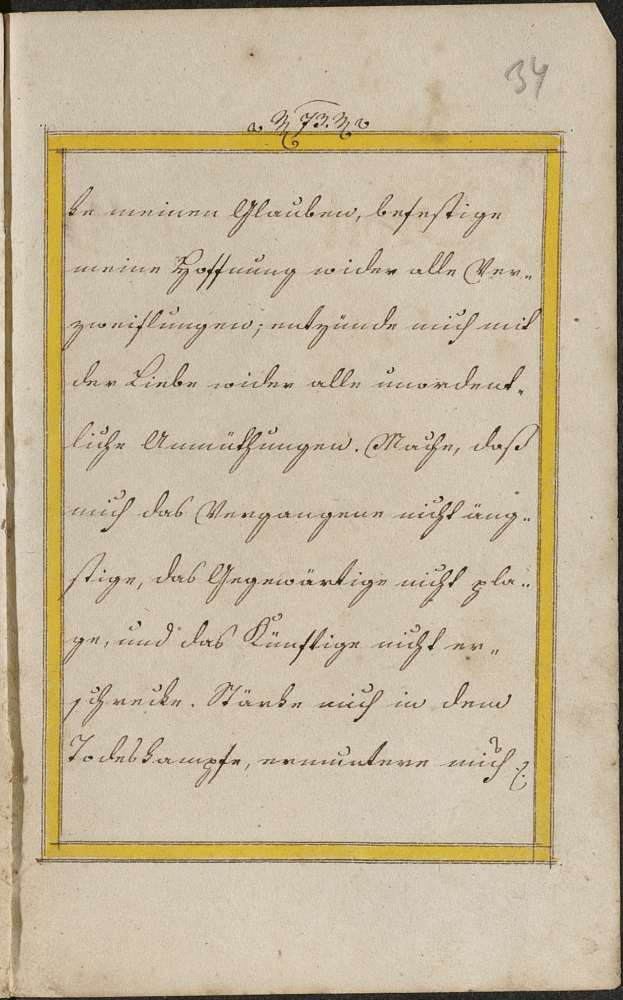 34
73.
ke meinen Glauben, befestige
meine Hoffnung wider alle Ver-
zweiflungen; entzünde mich mit
der Liebe wider alle unordent-
liche Anmüthungen. Mache, daß
mich das Vergangene nicht äng-
stige, das Gegenwärtige nicht pla-
ge, und das Künftige nicht er-
schrecke. Stärke mich in dem
Todeskampfe, ermuntere mich